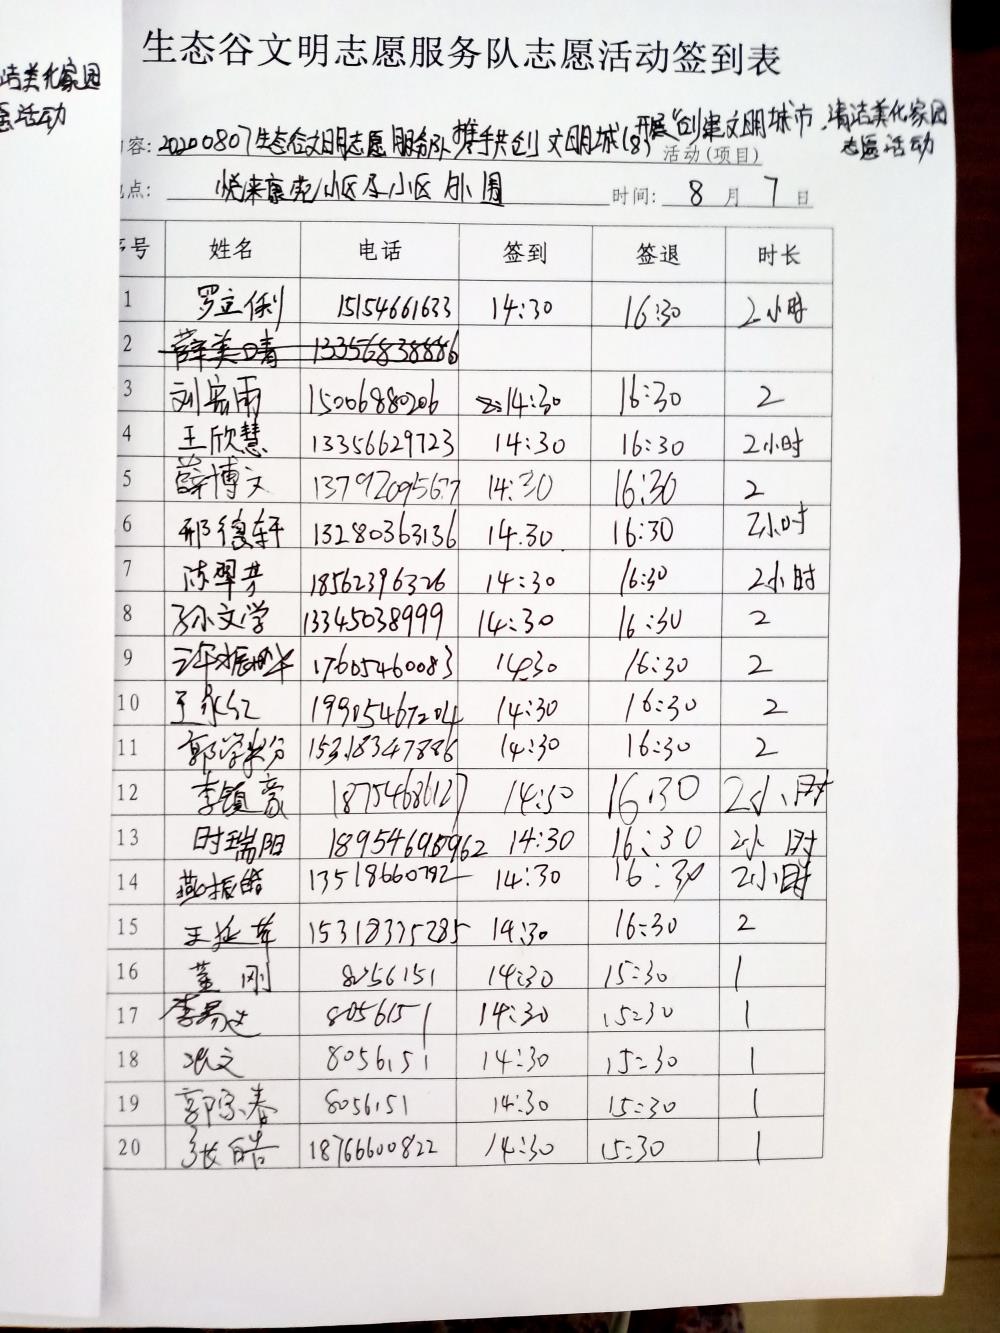 生态谷文明志愿服务队志愿活动签到表
洁美化家园
活动
容: 20200807生态谷文明志愿服务队"携手共创文明城(8)开展"创建文明城市,清洁美化家园志愿活动 活动(项目)
点: 悦来康苑小区及小区外围 时间: 8 月 7 日
序号 姓名 电话 签到 签退 时长
1 罗立俐 15154661633 14:30 16:30 2小时
2 薛美晴 13356838886
3 刘宏雨 15006880206 14:30 16:30 2
4 王欣慧 13356629723 14:30 16:30 2小时
5 薛博文 13792095677 14:30 16:30 2
6 邢德轩 13280363136 14.30. 16:30 2小时
7 陈翠芳 18562396326 14:30 16:30 2小时
8 孙文学 13345038999 14:30 16:30 2
9 17605460083 14:30 16:30 2
10 王永红 19905467204 14:30 16:30 2
11 郭学粉 15318347886 14:30 16:30 2
12 李镇豪 18754686127 14:30 16:30 2小时
13 时瑞阳 14:30 16:30 2小时
14 燕振皓 13518660792 14:30 16:30 2小时
15 王延华 15318375285 14:30 16:30 2
16 董刚 8056151 14:30 15:30 1
17 李易达 8056151 14:30 15:30 1
18 张文 8056151 14:30 15:30 1
19 郭宗春 8056151 14:30 15:30 1
20 张皓 18766600822 14:30 15:30 1